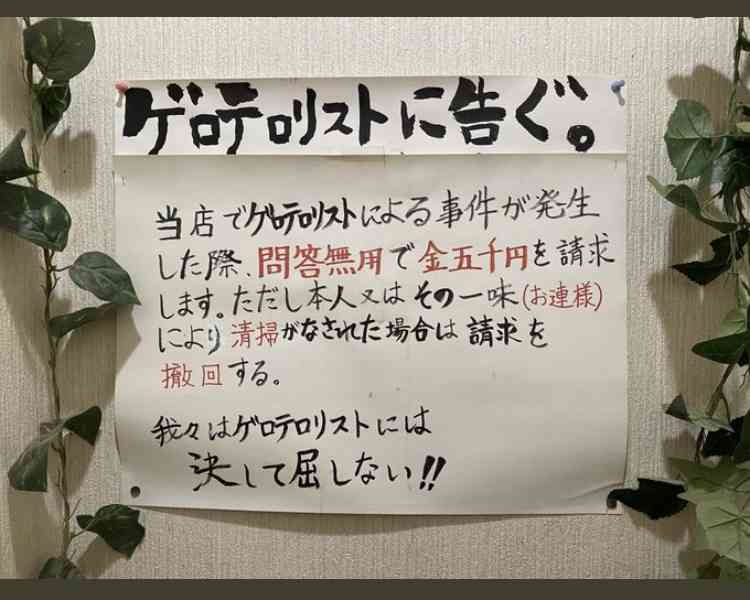 ゲロテロリストに告ぐ。
当店でゲロテロリストによる事件が発生
した際、問答無用で金五千円を請求
します。ただし本人又はその一味(お連様)
により清掃がなされた場合は請求を
撤回する。
我々はゲロテロリストには
決して屈しない!!